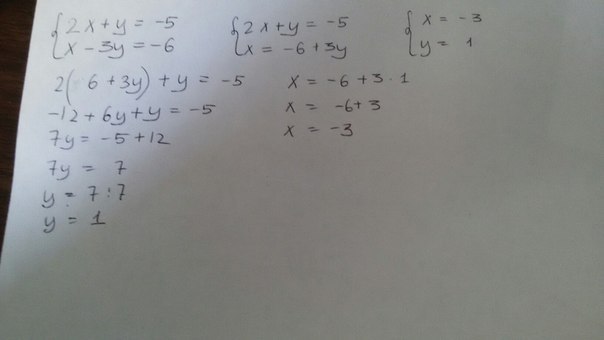 { 2x + y = -5
x - 3y = -6
{ 2x + y = -5
x = -6 + 3y
{ x = -3
y = 1
2( 6 + 3y) + y = -5
-12 + 6y + y = -5
7y = -5 + 12
7y = 7
y = 7 : 7
y = 1
x = -6 + 3 · 1
x = -6 + 3
x = -3